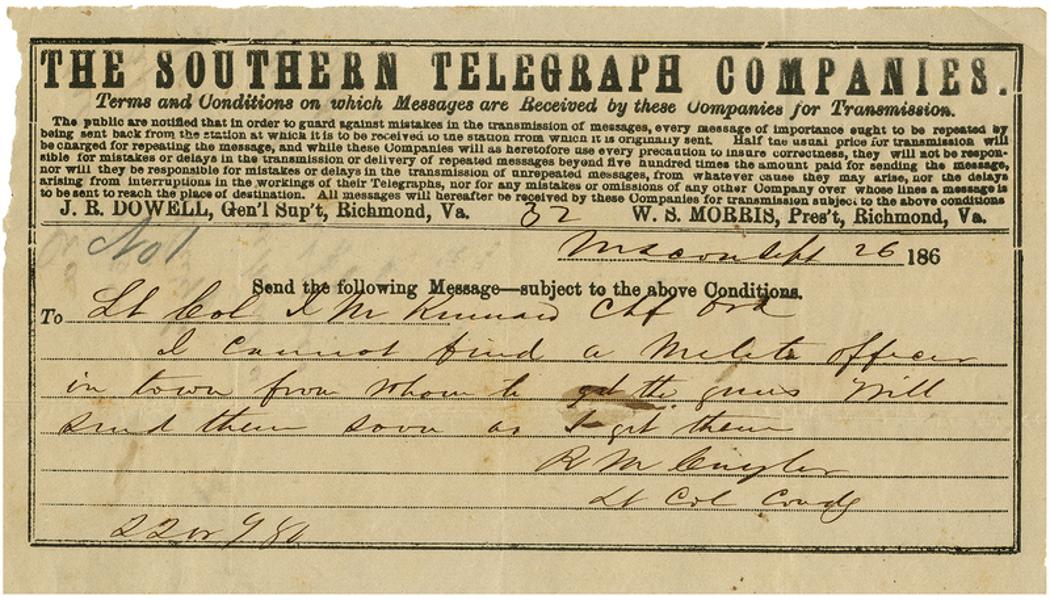 THE SOUTHERN TELEGRAPH COMPANIES.
Terms and Conditions on which Messages are Received by these Companies for Transmission.
The public are notified that in order to guard against mistakes in the transmission of messages, every message of importance ought to be repeated by
being sent back from the station at which it is to be received to the station from which it is originally sent. Half the usual price for transmission will
be charged for repeating the message, and while these Companies will as heretofore use every precaution to insure correctness, they will not be respon-
sible for mistakes or delays in the transmission or delivery of repeated messages beyond five hundred times the amount paid for sending the message,
nor will they be responsible for mistakes or delays in the transmission of unrepeated messages, from whatever cause they may arise, nor the delays
arising from interruptions in the workings of their Telegraphs, nor for any mistakes or omissions of any other Company over whose lines a message is
to be sent to reach the place of destination. All messages will hereafter be received by these Companies for transmission subject to the above conditions
J. R. DOWELL, Gen'l Sup't, Richmond, Va. 32 W. S. MORRIS, Pres't, Richmond, Va.
No 1
Macon Sept 26 186
Send the following Message—subject to the above Conditions.
To Lt Col I M Kennard Chf Ord
I cannot find a officer
in town from whom to get the guns Will
send them soon as I get them
R M Cuyler
Lt Col Comdg
22